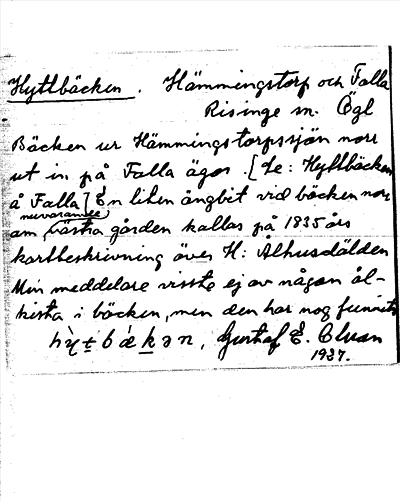 Hyttbäcken. Hämmingstorp och Falla
Risinge sn. Ögl
Bäcken ur Hämmingstorpssjön norr
ut in på Falla ägor. [Le: Hyttbäcken
å Falla] En liten ängbit vid bäcken norr
nuvarande
om västra gården kallas på 1835 års
kartbeskrivning över H: Alhusdälden
Min meddelare visste ej av någon ål-
kista i bäcken, men den har nog funnits
Gustaf E. Cluan
1927.